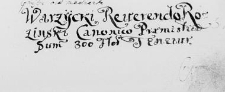 Warzycki Reuerendo Ro
zinski Canonico Premislien
Sum 300 Flor Tenetur